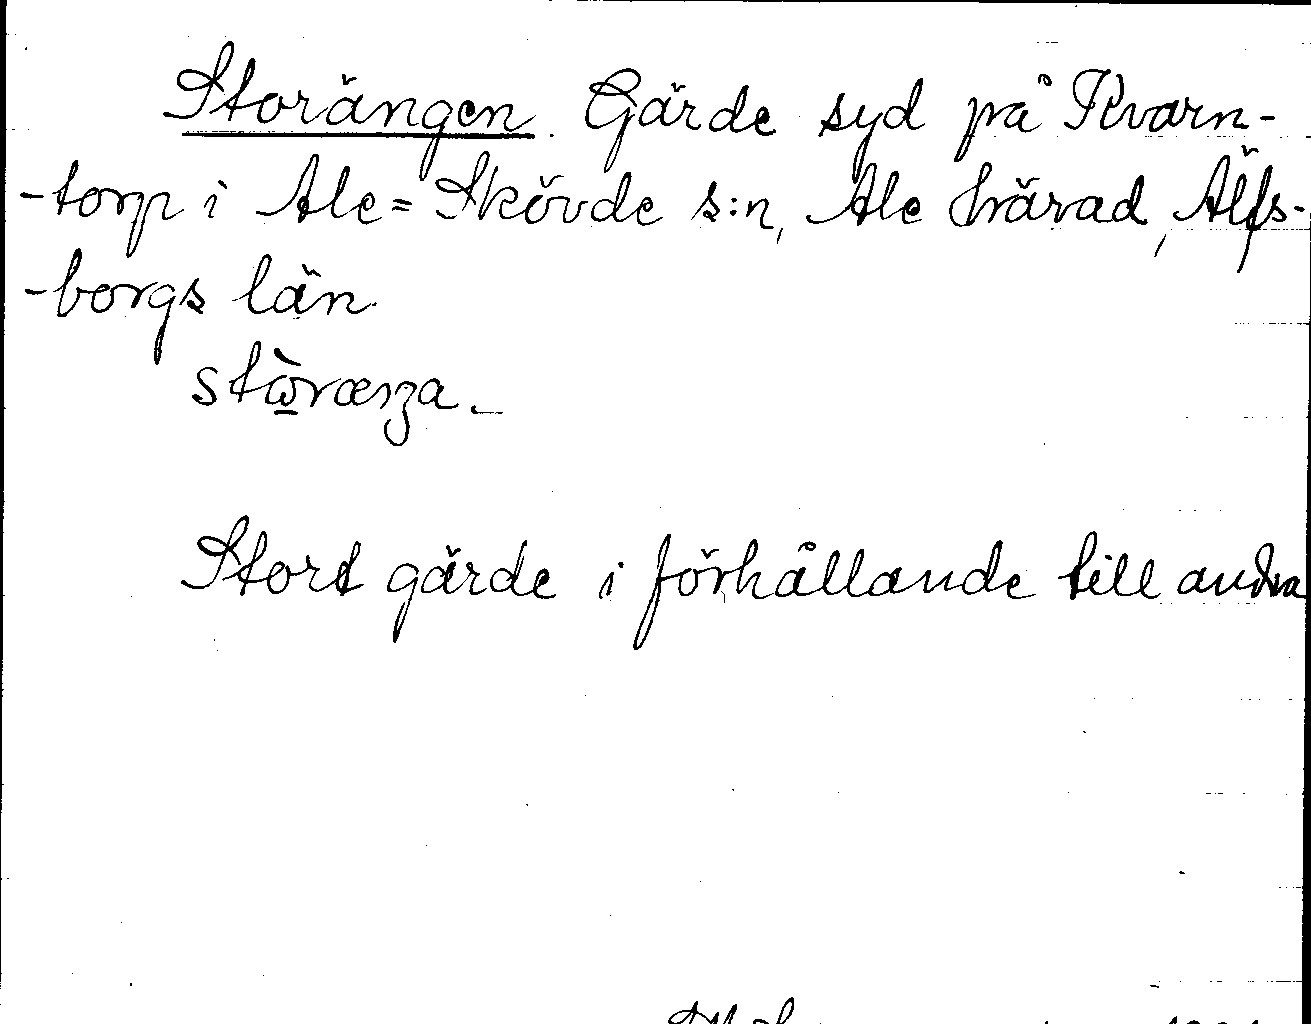 Storängen. Gärde syd på Kvarn-
-torp i Ale=Skövde s:n, Ale härad, Älfs-
-borgs län.
stὼ̱ræŋa.
Stort gärde i förhållande till andra